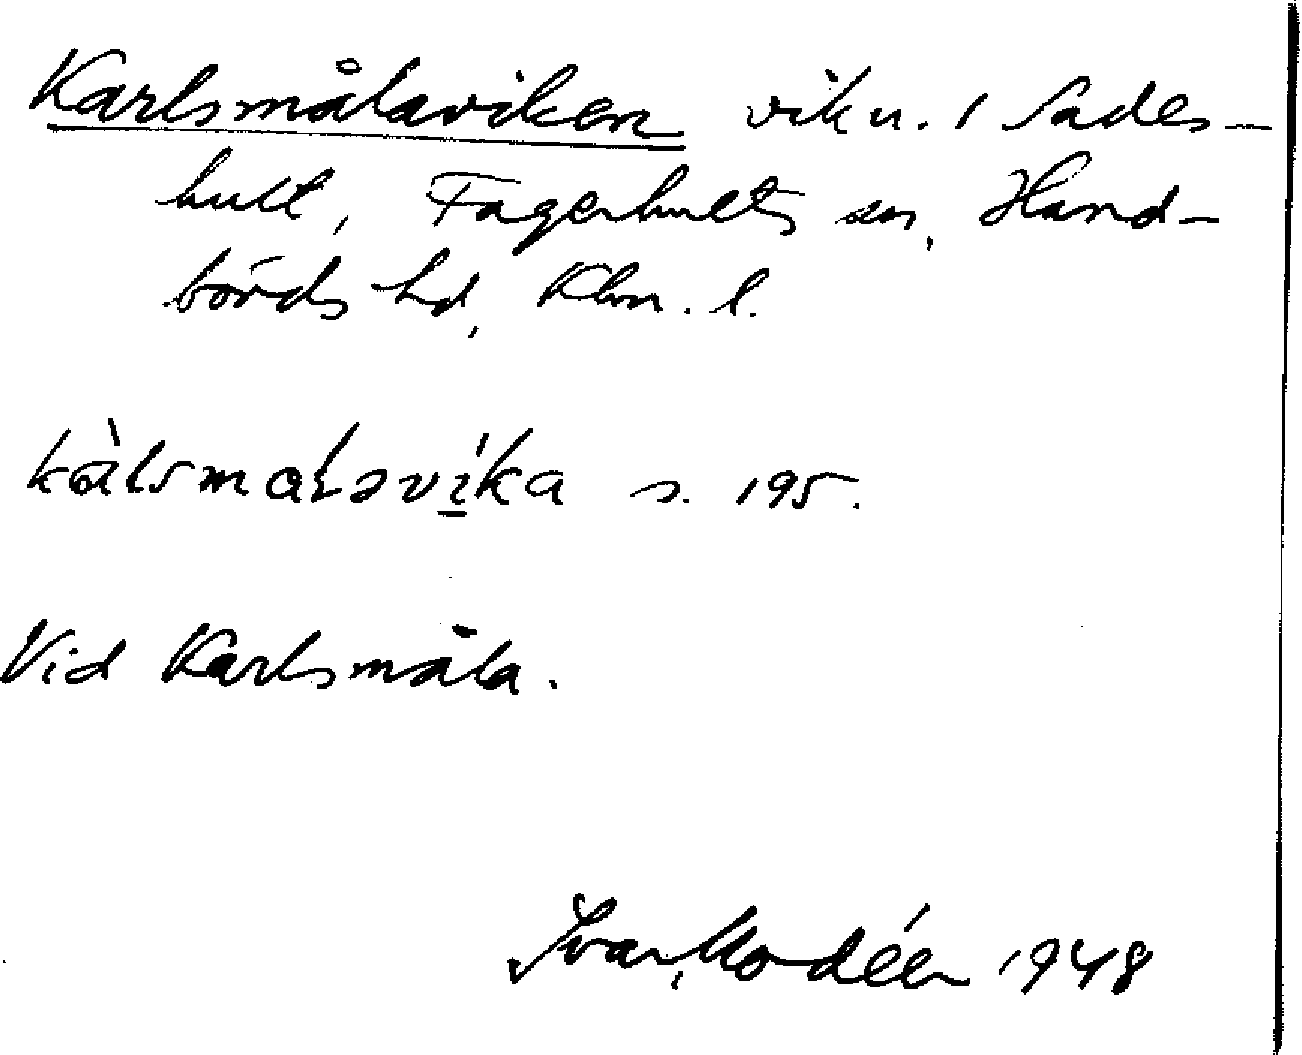 Karlsmålaviken vik u. 1 Sades-
hult, Fagerhults sn, Hand-
börds hd, Klm. l.
kàlsmalavíka s. 195.
Vid Karlsmåla.
Ivar Modéer 1948